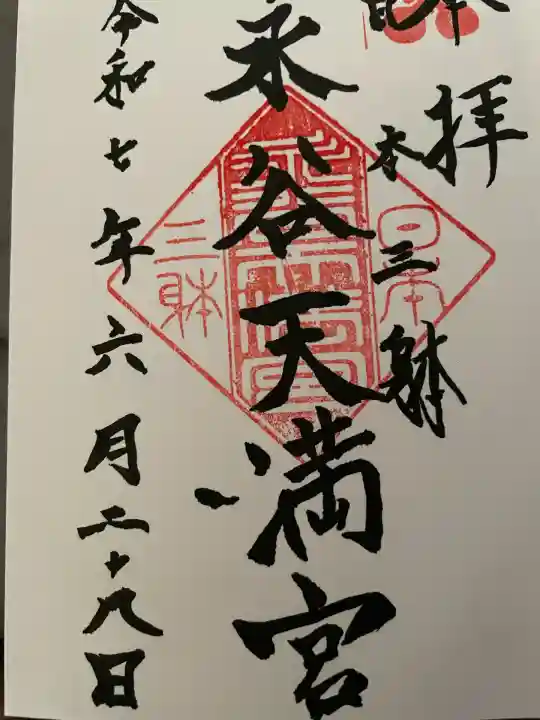 奉拝
日本三躰
永谷天満宮
令和七年六月二十八日
日本
三躰